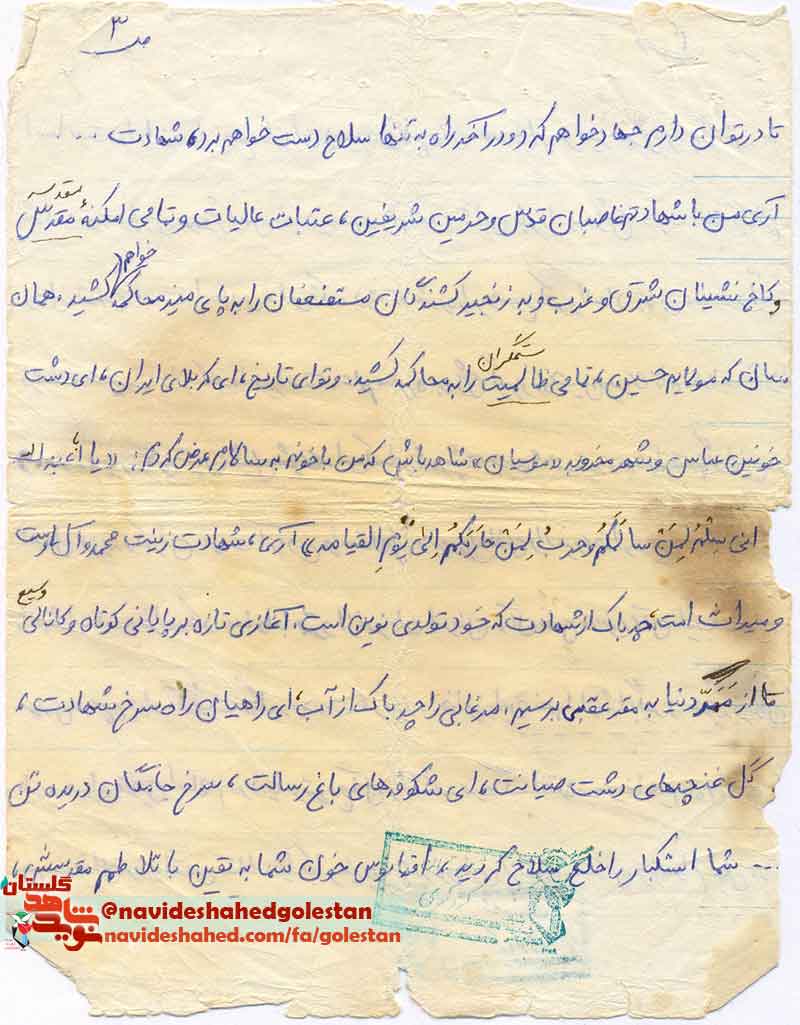 ص ۳
تا در توان دارم جهاد خواهم کرد و در آخر راه به تنها سلاح دست خواهم برد، شهادت ...
مقدسه
آری من با شهادتم غاصبان قدس و حرمین شریفین، عتبات عالیات و تمامی امکنهٔ مقدس
خواهم
و کاخ نشینان شرق و غرب و به زنجیر کشندگان مستضعفان را به پای میز محاکمه کشید. همان
ستمگران
سان که مولایم حسین، تمامی ظالمیت را به محاکمه کشید. و تو ای تاریخ، ای کربلای ایران، ای دشت
خونین عباس و شهر مخروبه «موسیان» شاهد باش که من با خونم به سالارم عرض کردم: «یا اباعبدالله
انی سِلْمٌ لِمَنْ سالَمَکُم وحربٌ لِمَنْ حارَبَکُمْ اِلیٰ یَوْمِ القیامه» آری، شهادت زینت محمد و آل اوست
وسیع
و میراث است، چه باک از شهادت که خود تولدی نوین است. آغازی تازه بر پایانی کوتاه و کانالی
تا از مَمَرّ دنیا به مقر عقبی برسیم. مرغابی را چه باک از آب، ای راهیان راه سرخ شهادت،
گل غنچه‌های دشت صیانت، ای شکوفه‌های باغ رسالت، سرخ جامگان دریده تن
... شما استکبار را خلع سلاح کردید، اقیانوس خون شما به یقین با تلاطم مقدسش،
نوید شاهد گلستان
@navideshahedgolestan
navideshahed.com/fa/golestan